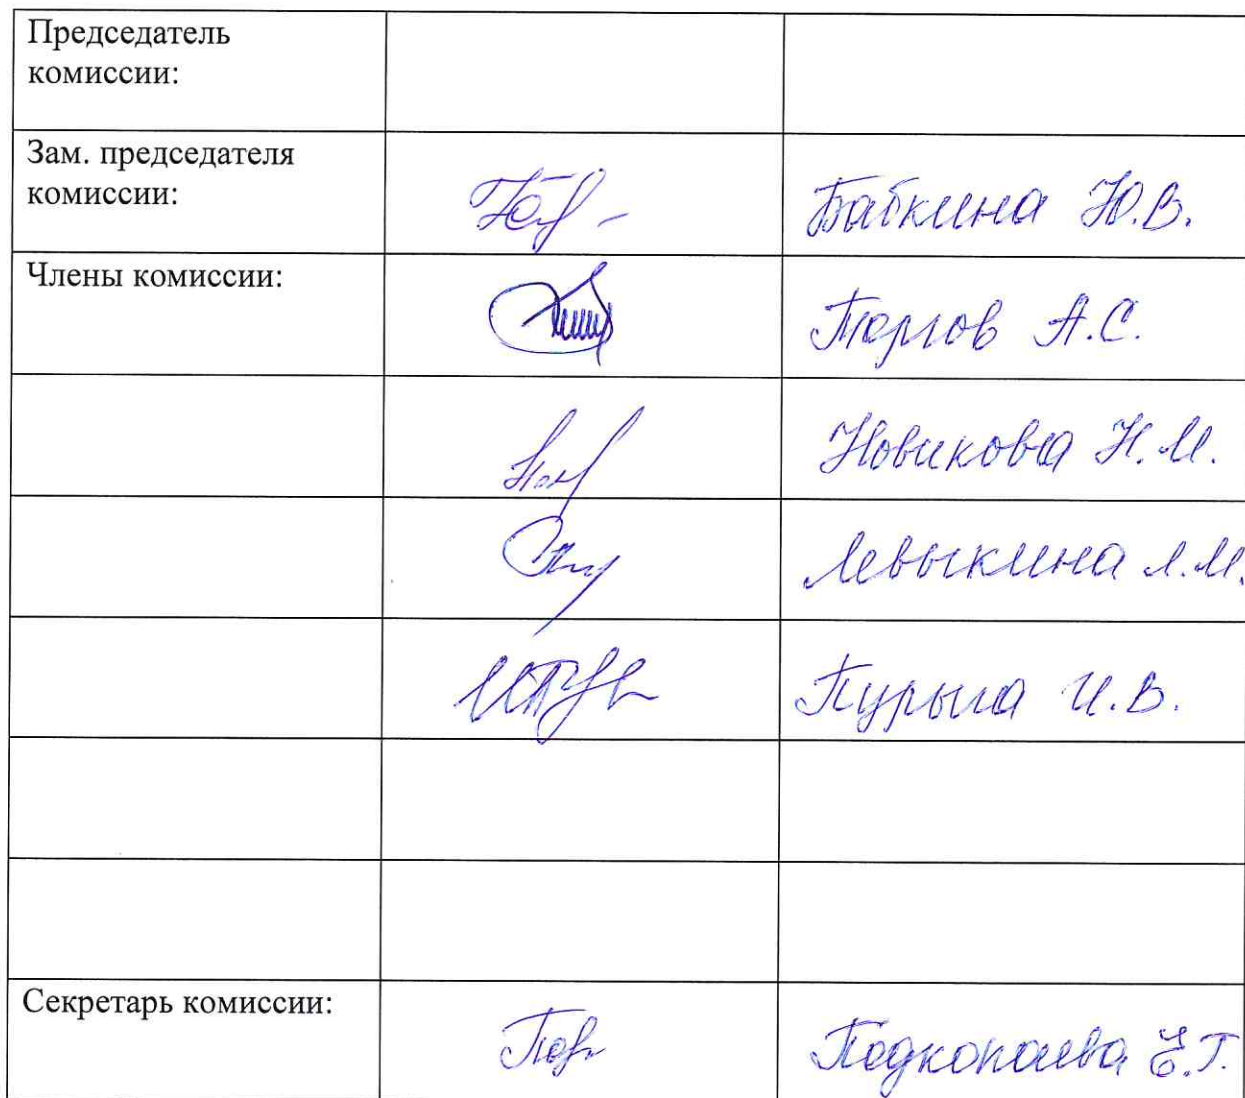 Председатель
комиссии:
Зам. председателя
комиссии:
Бабкина Ю.В.
Члены комиссии:
А.С.
Новикова Н.М.
Левыкина Л.М.
Пурыга И.В.
Секретарь комиссии:
Подкопаева Е.Г.